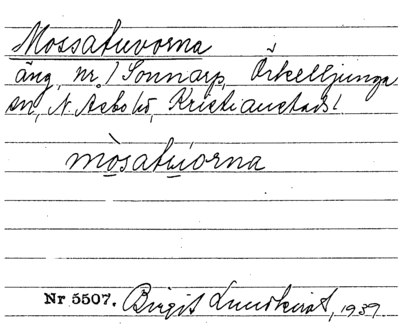 Mossatuvorna
äng, nr 1 Sonnarp, Örkelljunga
sn, N. Åsbo hd, Kristianstads l.
mòsatuvorna
Nr 5507. Birgit Lundkvist, 1939.